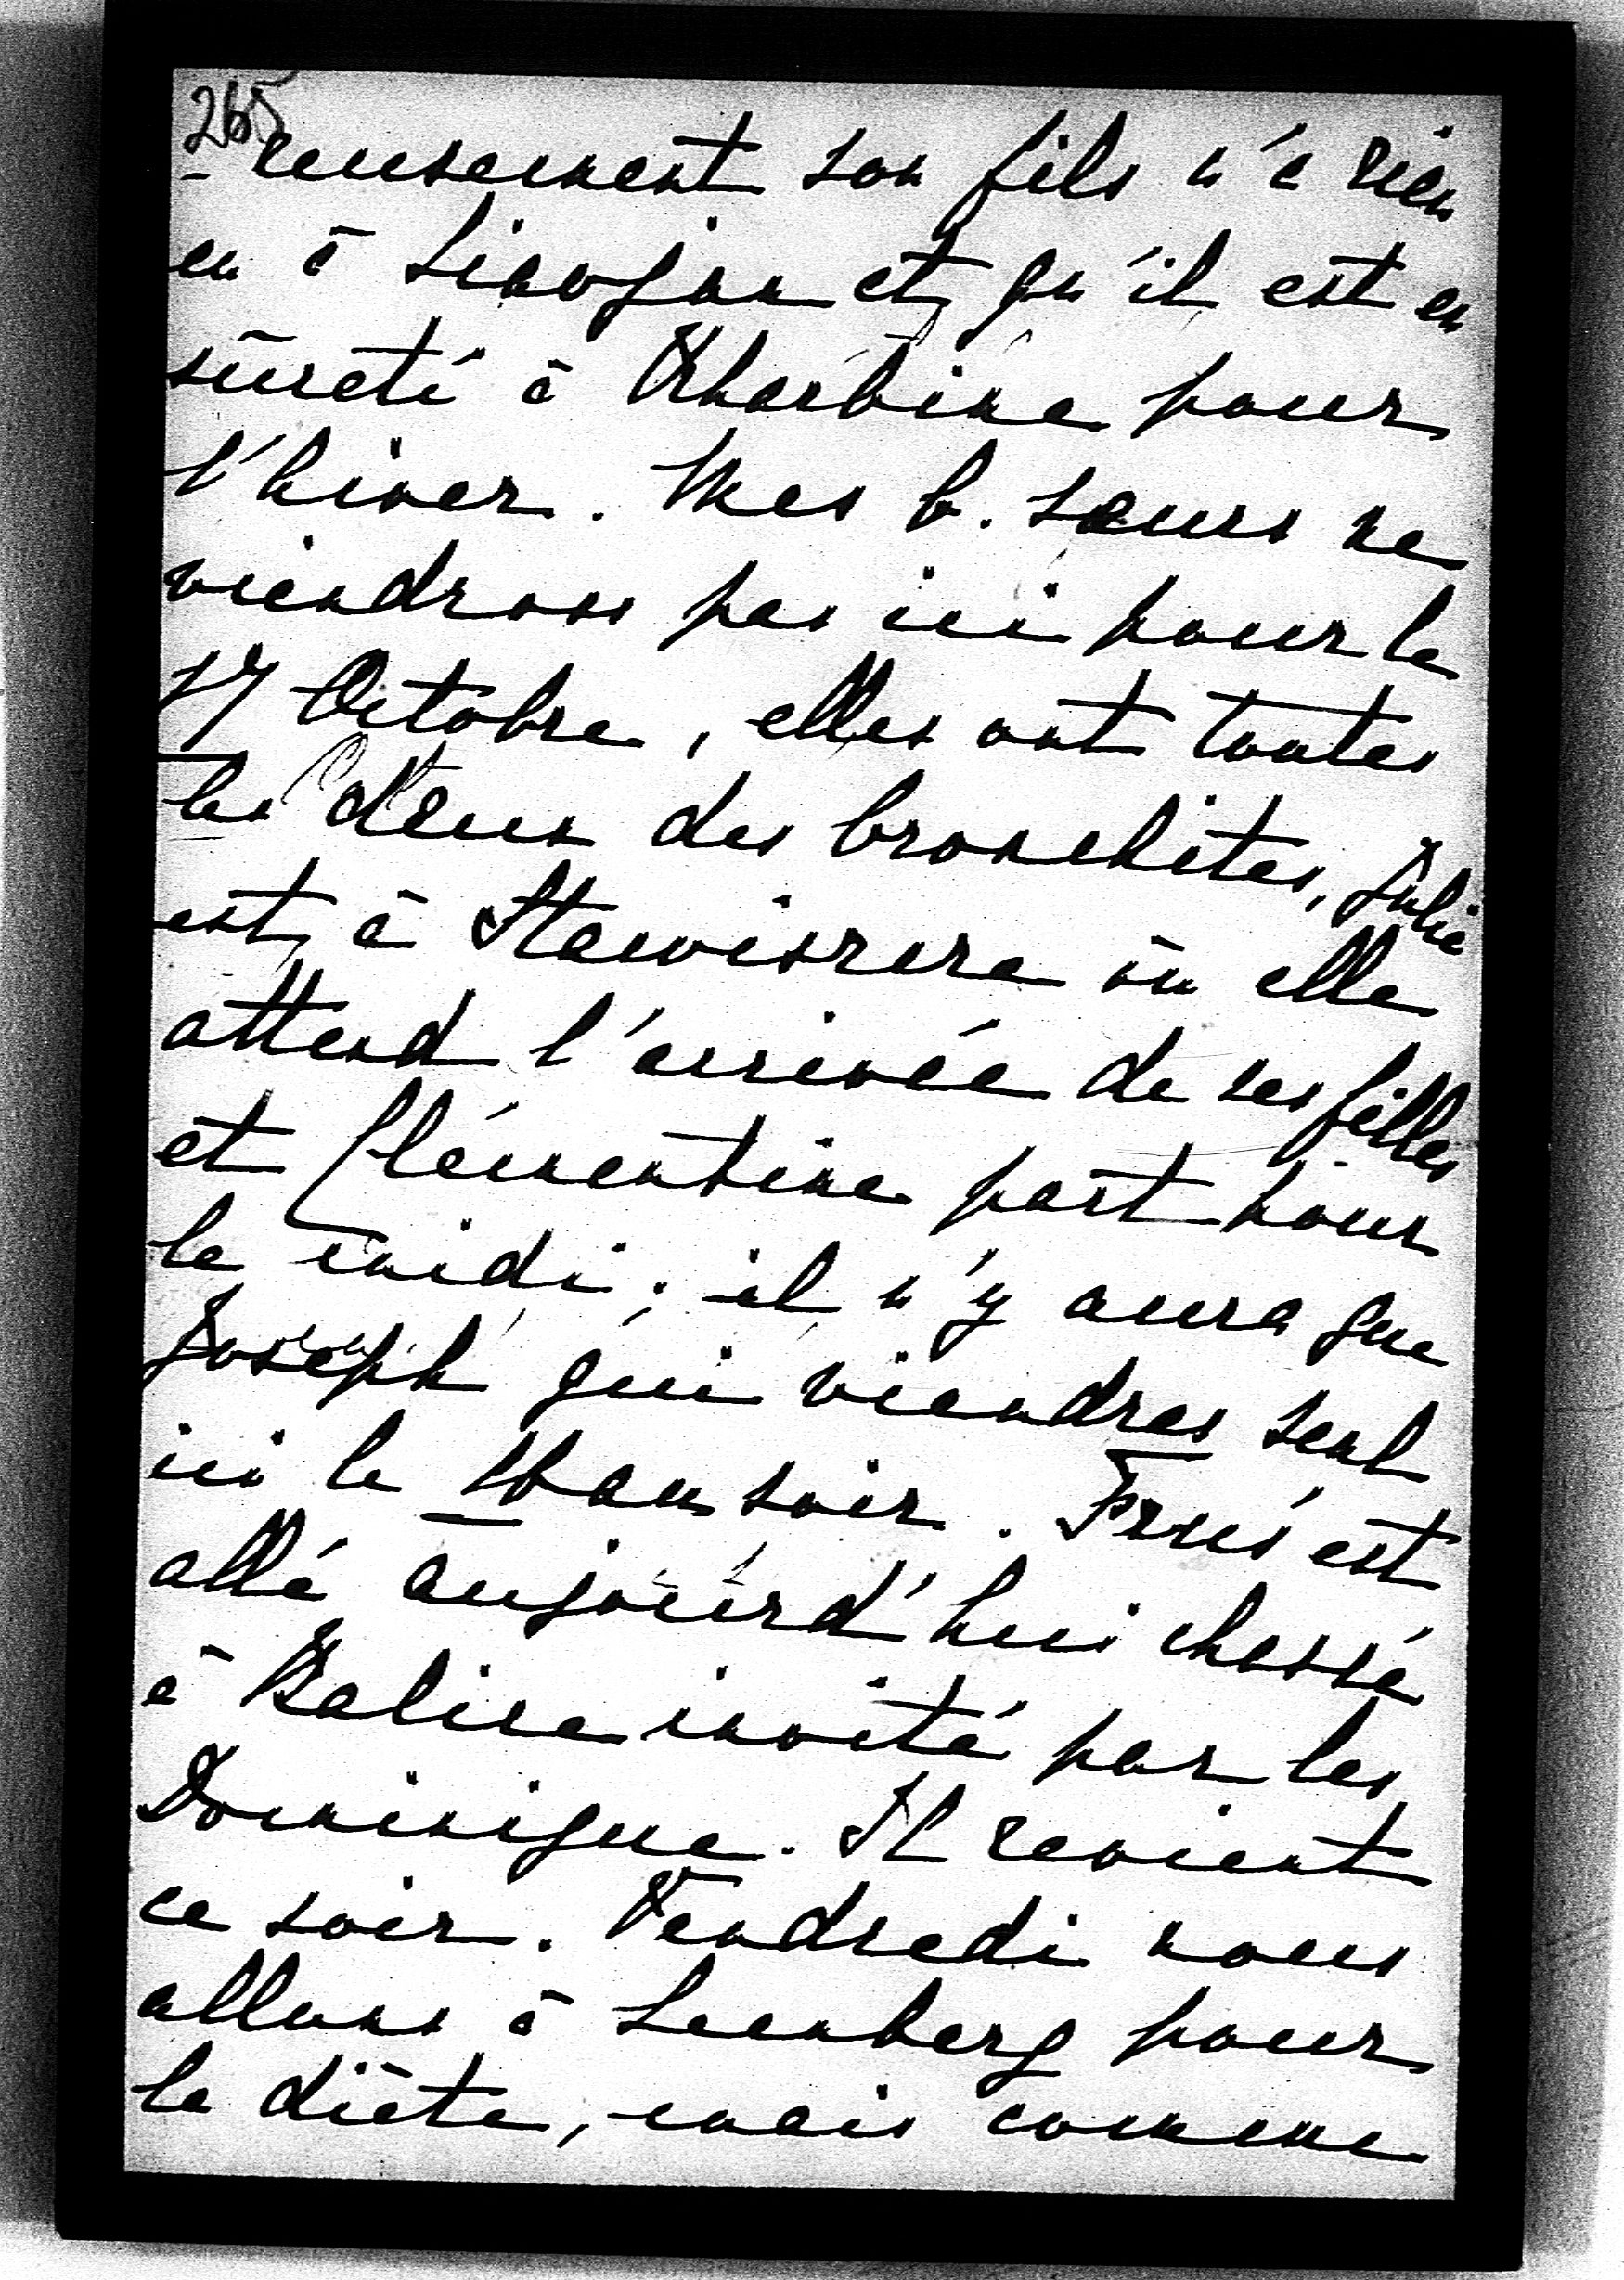 265
- reusement son fils n'a rien
eu à Liaojan et qu'il est en
sûreté à Kharbine pour
l'hiver. Mes b. sœurs ne
viendront pas ici pour le
17 Octobre, elles ont toutes
les deux des bronchites, Julie
est à où elle
attend l'arrivée de ses filles
et Clémentine part pour
le midi; il n'y aura que
Joseph qui viendras seul
ici le soir. est
allé aujourd'hui chassé
à Balice invité par les
Dominique. Il revient
ce soir. Vendredi nous
allons à Lemberg pour
la diète, mais comme